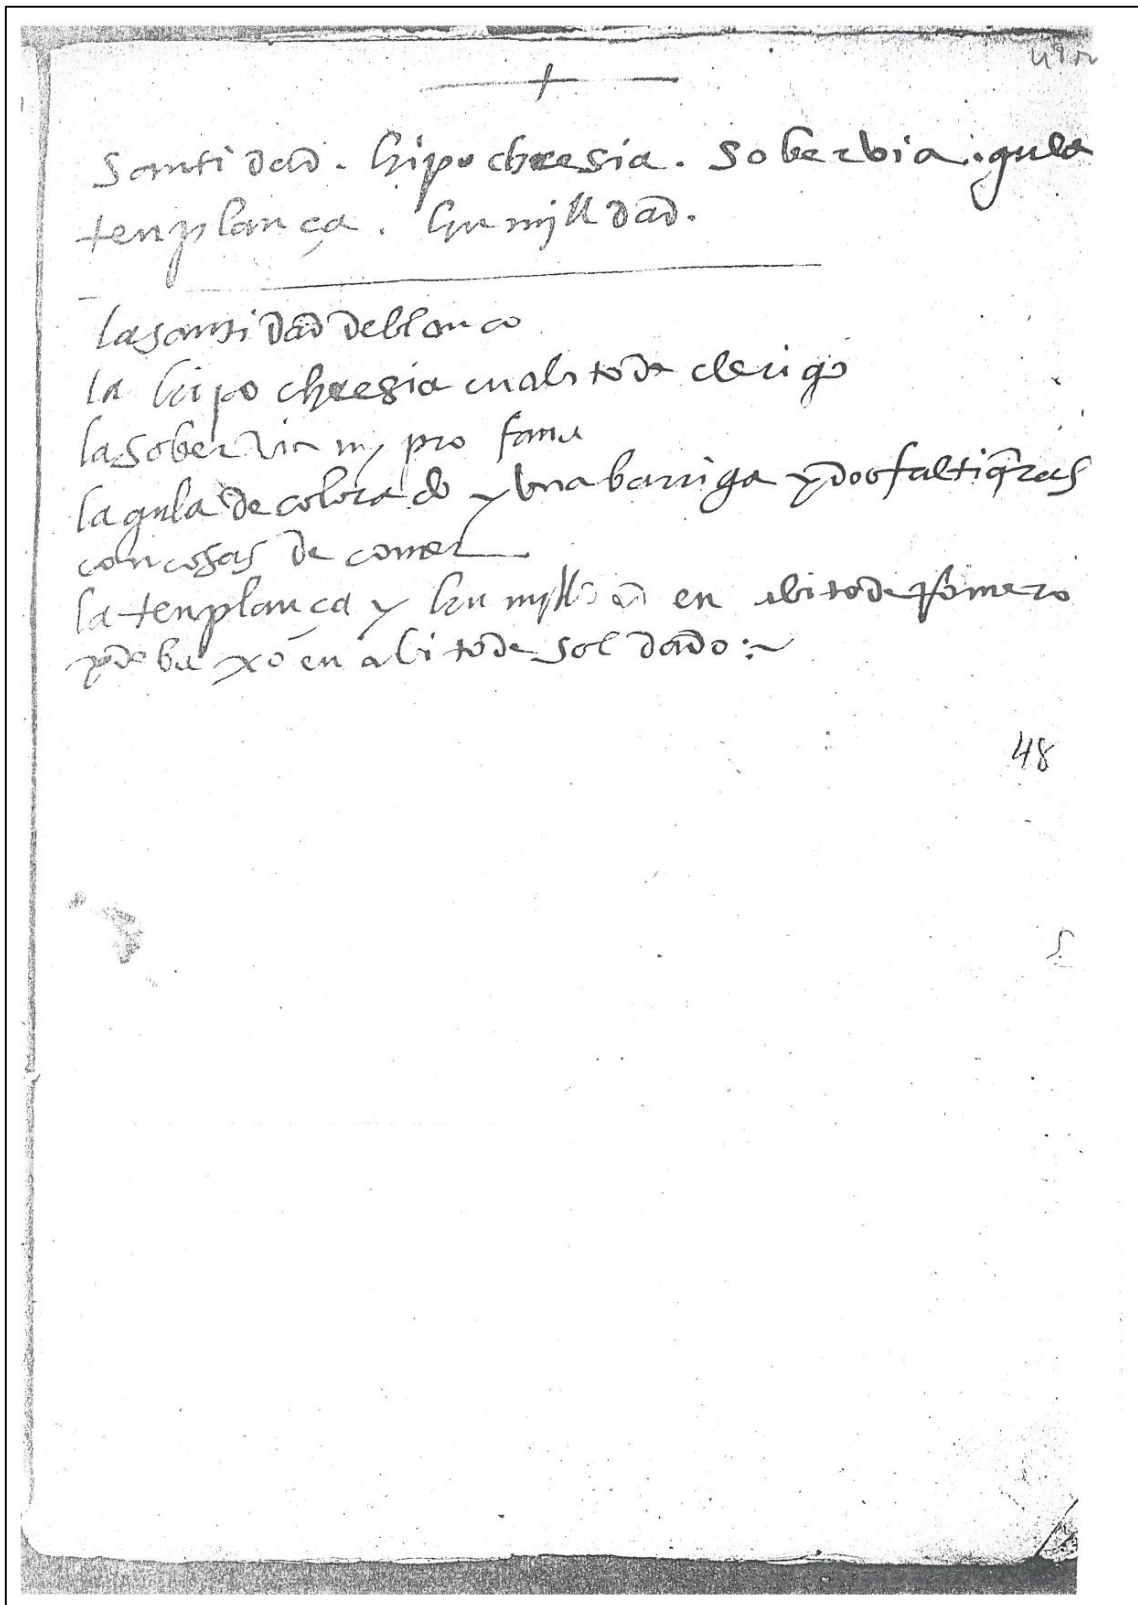 santidad. hipochresia. soberbia. gula
tenplança. humilldad.
la santidad de blanco
la hipochresia en abito de clerigo
la sobervia muy profana
la gula de colorado y una barriga y dos faltiq̃ras
con cosas de comer
la tenplança y humilldad en abito de Romero
y debaxo en abito de soldado:~
48